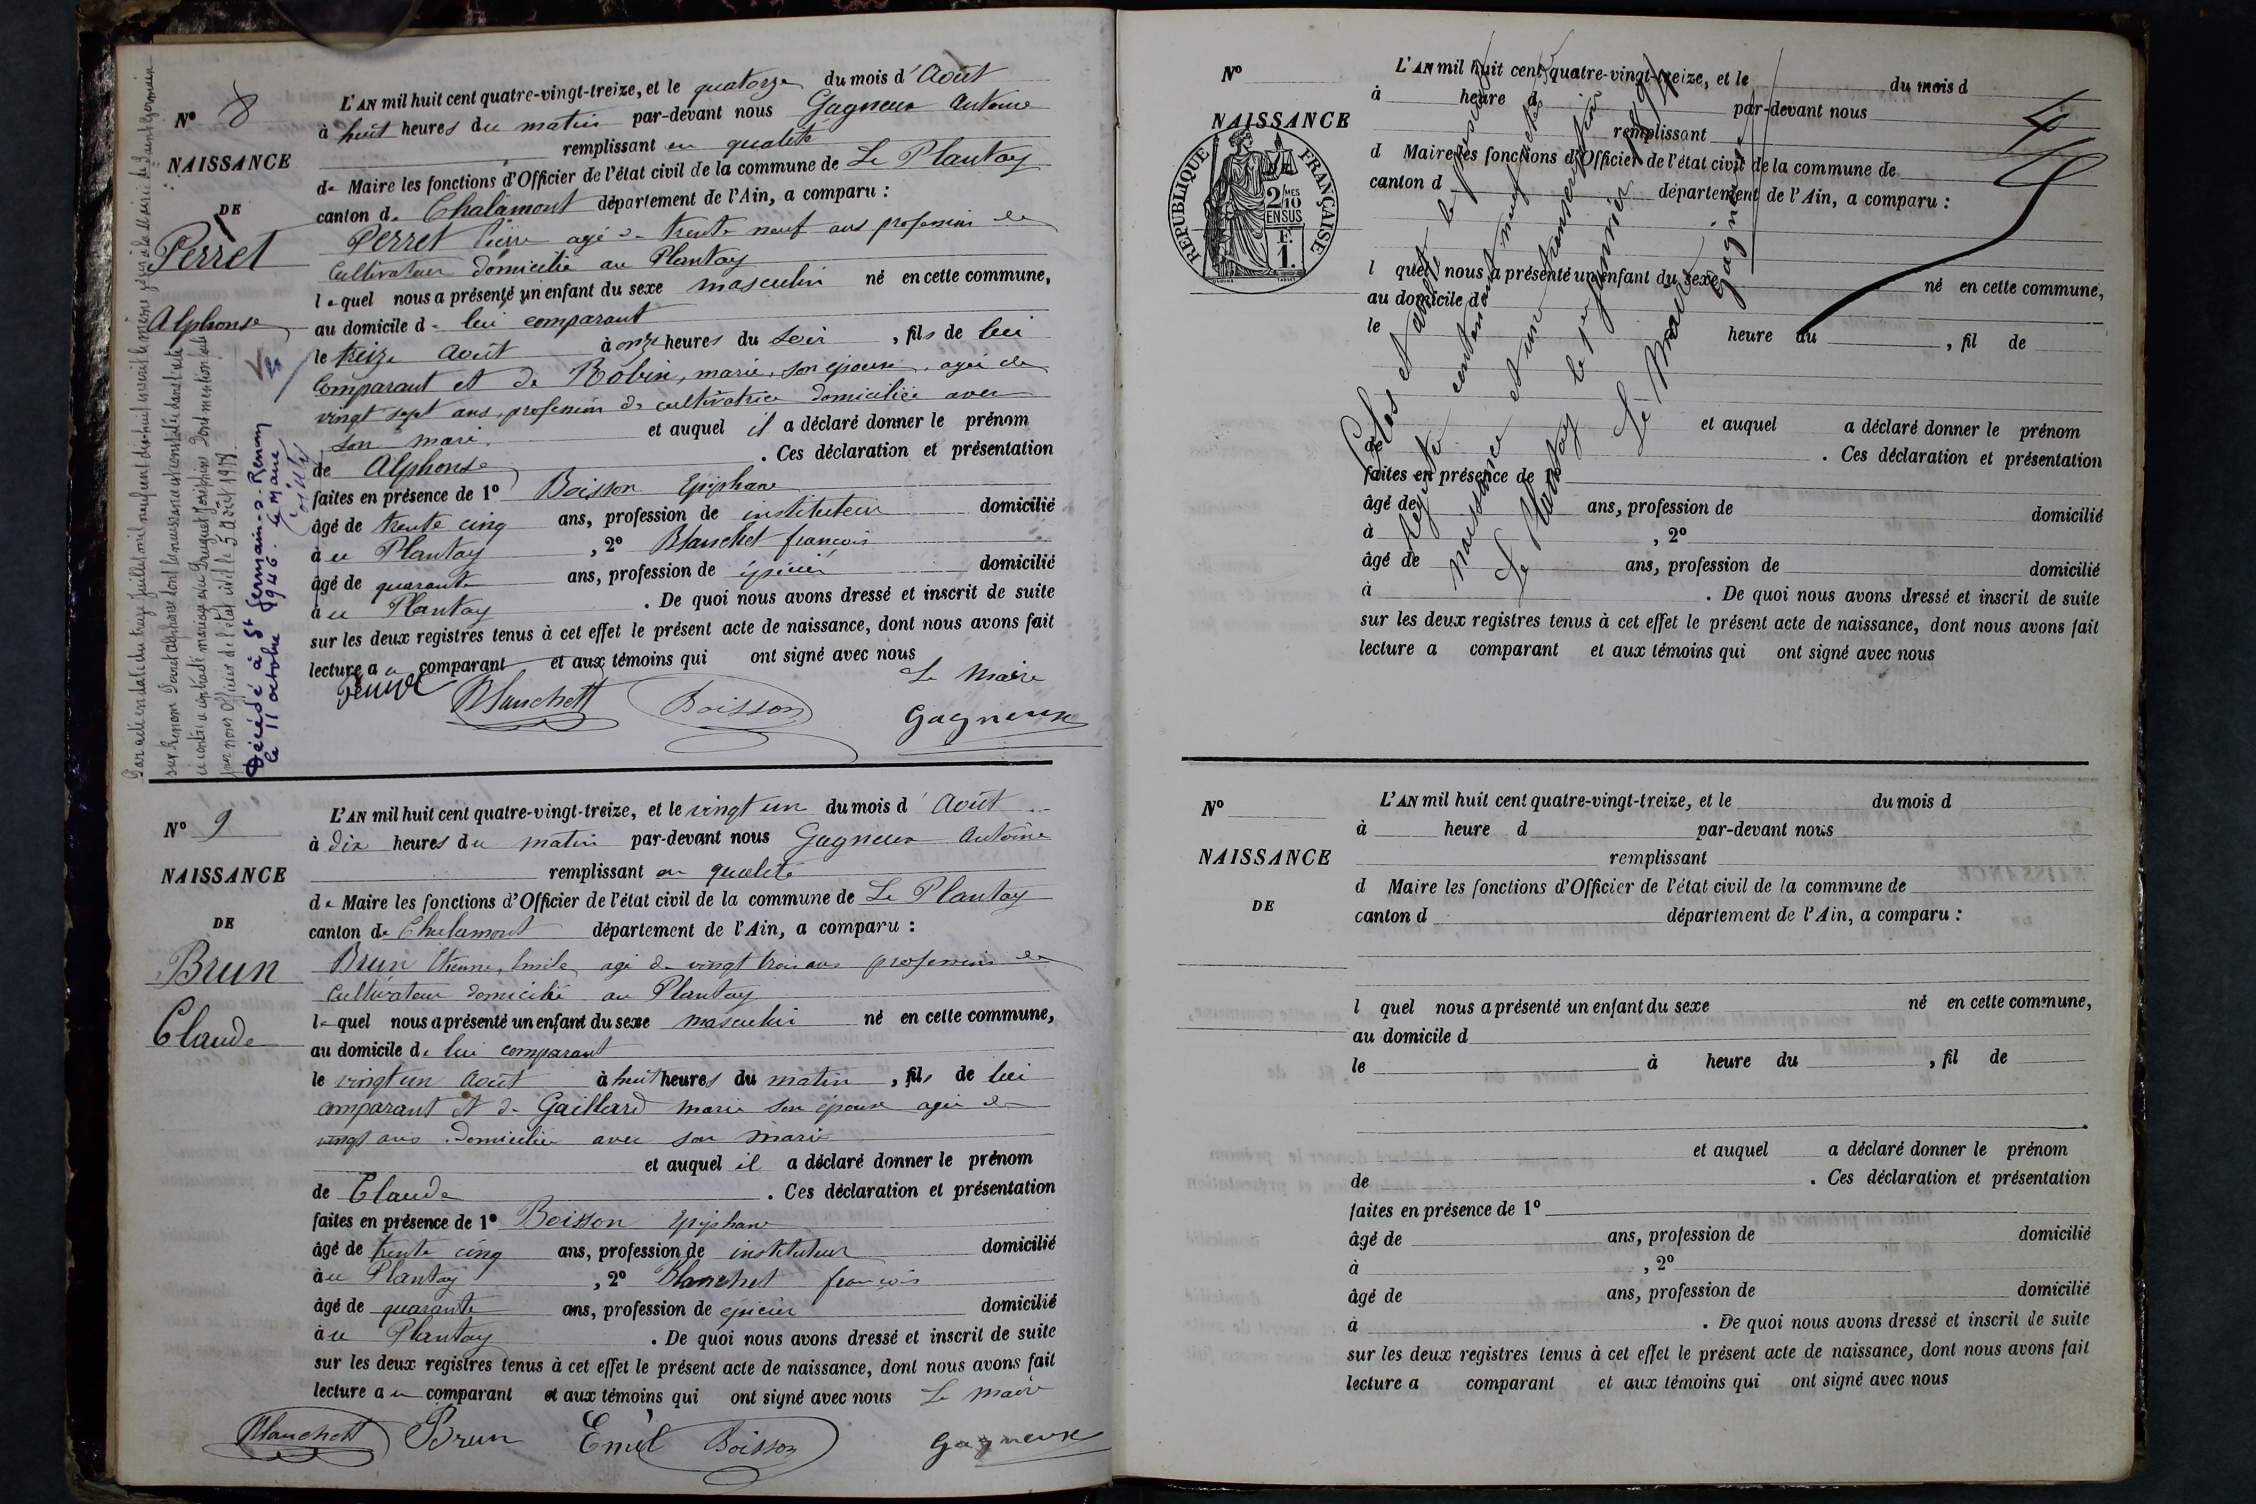 N° 8
NAISSANCE
DE
Perret
Alphonse
L'AN mil huit cent quatre-vingt-treize, et le quatorze du mois d'Août
à huit heures du matin par-devant nous Gagneux Antoine
remplissant en qualité
de Maire les fonctions d'Officier de l'état civil de la commune de Le Plantay
canton de Chalamont département de l'Ain, a comparu :
Perret Pierre agé de trente neuf ans profession de
Cultivateur domicilié au Plantay
lequel nous a présenté un enfant du sexe masculin né en cette commune,
au domicile de lui comparant
le treize Août à onze heures du soir, fils de lui
Comparant et de Robin, marie, son épouse, agée de
vingt sept ans, profession de cultivatrice domiciliée avec
son mari. et auquel il a déclaré donner le prénom
de Alphonse. Ces déclaration et présentation
faites en présence de 1° Boisson Epiphane
âgé de trente cinq ans, profession de instituteur domicilié
à au Plantay, 2° Blanchet françois
âgé de quarante ans, profession de épicier domicilié
au Plantay. De quoi nous avons dressé et inscrit de suite
sur les deux registres tenus à cet effet le présent acte de naissance, dont nous avons fait
lecture au comparant et aux témoins qui ont signé avec nous
Le Maire
Blanchett Boisson Gagneux
Par acte en date du treize juillet mil neuf cent dix-huit inscrit le même jour à la Mairie de Saint Germain
sur Renom Perret Alphonse dont la naissance est constatée dans l'acte
ci contre a contracté mariage avec Joséphine Dont mention
par nous Officier de l'état civil le 5 Août 1918.
Décédé à St Germain-s-Renom
le 11 octobre 1946. Le Maire
N° 9
NAISSANCE
DE
Brun
Claude
L'AN mil huit cent quatre-vingt-treize, et le vingt un du mois d'Août
à dix heures du matin par-devant nous Gagneux Antoine
remplissant en qualité
de Maire les fonctions d'Officier de l'état civil de la commune de Le Plantay
canton de Chalamont département de l'Ain, a comparu :
Brun Etienne, Emile agé de vingt trois ans profession de
Cultivateur domicilié au Plantay
lequel nous a présenté un enfant du sexe masculin né en cette commune,
au domicile de lui comparant
le vingt un Août à huit heures du matin, fils de lui
comparant et de Gaillard marie son épouse agée de
vingt ans domiciliée avec son mari
et auquel il a déclaré donner le prénom
de Claude. Ces déclaration et présentation
faites en présence de 1° Boisson Epiphane
âgé de trente cinq ans, profession de instituteur domicilié
au Plantay, 2° Blanchet françois
âgé de quarante ans, profession de épicier domicilié
au Plantay. De quoi nous avons dressé et inscrit de suite
sur les deux registres tenus à cet effet le présent acte de naissance, dont nous avons fait
lecture au comparant et aux témoins qui ont signé avec nous Le maire
Blanchett Brun Emil Boisson Gagneux
N°
NAISSANCE
RÉPUBLIQUE FRANÇAISE
2 MES 10 EN SUS
F. 1.
L'AN mil huit cent quatre-vingt-treize, et le du mois d
à heure d par-devant nous
remplissant
d Maire les fonctions d'Officier de l'état civil de la commune de
canton d département de l'Ain, a comparu :
l quel nous a présenté un enfant du sexe né en cette commune,
au domicile d
le heure du, fil de
et auquel a déclaré donner le prénom
de. Ces déclaration et présentation
faites en présence de
âgé de ans, profession de domicilié
à, 2°
âgé de ans, profession de domicilié
à. De quoi nous avons dressé et inscrit de suite
sur les deux registres tenus à cet effet le présent acte de naissance, dont nous avons fait
lecture a comparant et aux témoins qui ont signé avec nous
Clos et arrêté le présent
registre contenant neuf actes de
naissance et une transcription
Le Plantay le 1er janvier 1894
Le Maire
Gagneux
N°
NAISSANCE
DE
L'AN mil huit cent quatre-vingt-treize, et le du mois d
à heure d par-devant nous
remplissant
d Maire les fonctions d'Officier de l'état civil de la commune de
canton d département de l'Ain, a comparu :
l quel nous a présenté un enfant du sexe né en cette commune,
au domicile d
le à heure du, fil de
et auquel a déclaré donner le prénom
de. Ces déclaration et présentation
faites en présence de 1°
âgé de ans, profession de domicilié
à, 2°
âgé de ans, profession de domicilié
à. De quoi nous avons dressé et inscrit de suite
sur les deux registres tenus à cet effet le présent acte de naissance, dont nous avons fait
lecture a comparant et aux témoins qui ont signé avec nous